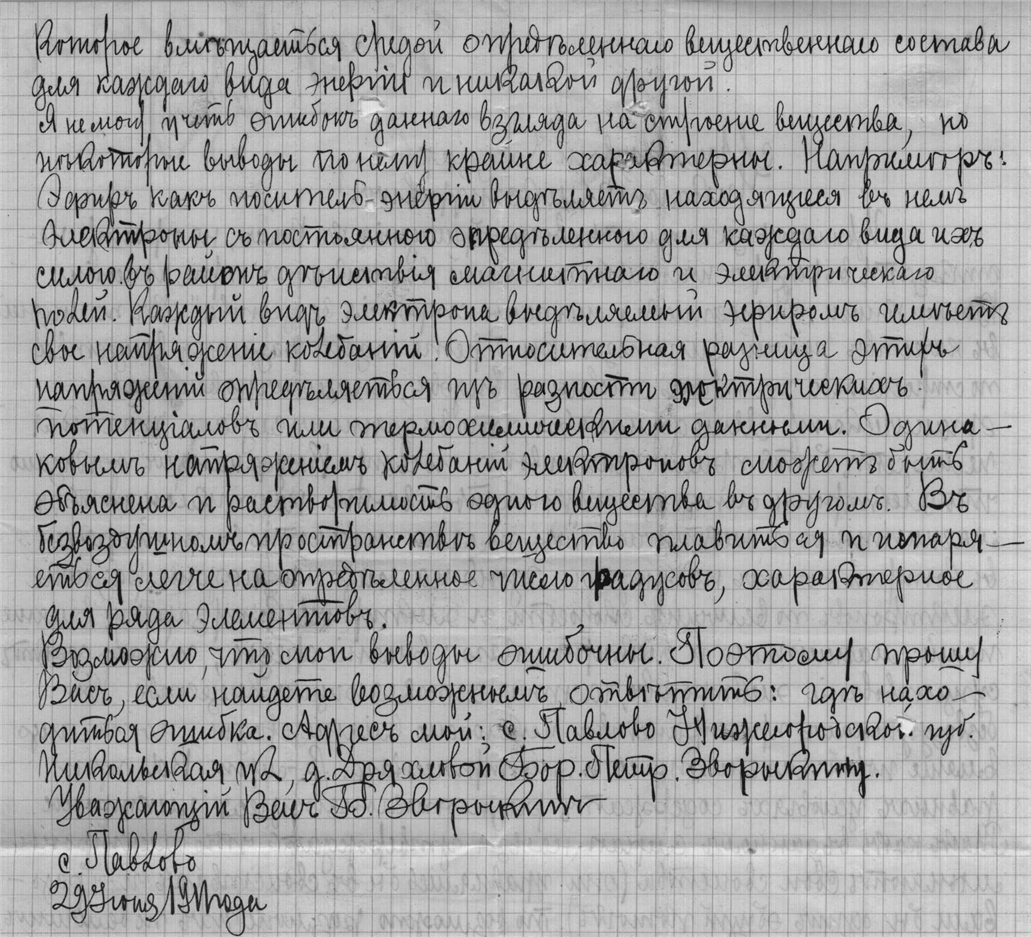 которое вмѣщается средой опредѣленнаго вещественнаго состава
для каждаго вида энергіи и никакой другой.
Я не могу учесть ошибокъ даннаго взгляда на строеніе вещества, но
нѣкоторые выводы по нему крайне характерны. Напримѣръ:
Эфиръ какъ носитель энергіи выдѣляетъ находящіеся въ немъ
электроны съ постоянного опредѣленного для каждаго вида ихъ
силою въ районѣ дѣйствія магнитнаго и электрическаго
полей. Каждый видъ электрона выдѣляемый эфиромъ имѣетъ
свое напряженіе колебаній. Относительная разница этихъ
напряженій опредѣляеться изъ разности электрическихъ
потенціаловъ или термохимическими данными. Одина-
ковымъ напряженіемъ колебаній электроновъ можетъ быть
объяснена и растворимость одного вещества въ другомъ. Въ
безвоздушномъ пространствѣ вещество плавиться и испаря-
еться легче на опредѣленное число градусовъ, характерное
для ряда элементовъ.
Возможно, что мои выводы ошибочны. Поэтому прошу
Васъ, если найдете возможнымъ, отвѣтить: гдѣ нахо-
диться ошибка. Адресъ мой: с. Павлово Нижегородской губ.
Никольская ул. д. Дряхловой Бор. Петр. Зворыкину.
Уважающій Васъ Б. Зворыкинъ
с. Павлово
29 Іюня 1911 года